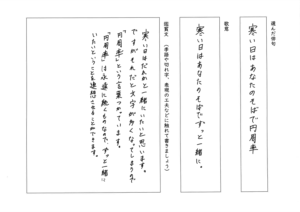 選んだ俳句
寒い日はあなたのそばで円周率
歌意
寒い日はあなたのそばでずっと一緒に。
鑑賞文(季語や切れ字、表現の工夫などに触れて書きましょう)
寒い日はだれかと一緒にいたいと思います。
ですがそれだと文字が多くなってしまうので
「円周率」という言葉をつかっています。
「円周率」は永遠に続くものなので、ずっと一緒に
いたいということを連想させることができます。